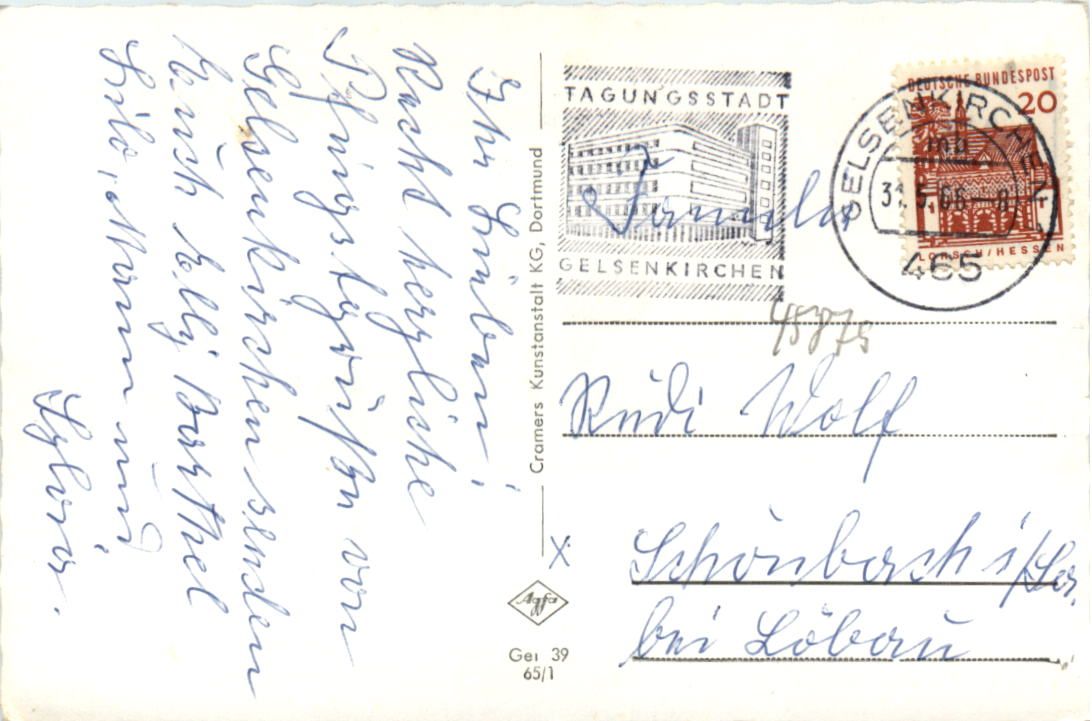 Ihr Lieben!
Recht herzliche
Pfingstgrüße von
Gelsenkirchen senden
Euch Elly Barthel
Lilo, Mann und
Sylvia.
Cramers Kunstanstalt KG, Dortmund
Agfa
Gei 39
65/1
TAGUNGSSTADT
GELSENKIRCHEN
GELSENKIRCHEN 1
31.5.66-8
465
DEUTSCHE BUNDESPOST
20
LORSCH/HESSEN
Familie
45875
Rudi Wolf
Schönbach i/Sa.
bei Löbau
X